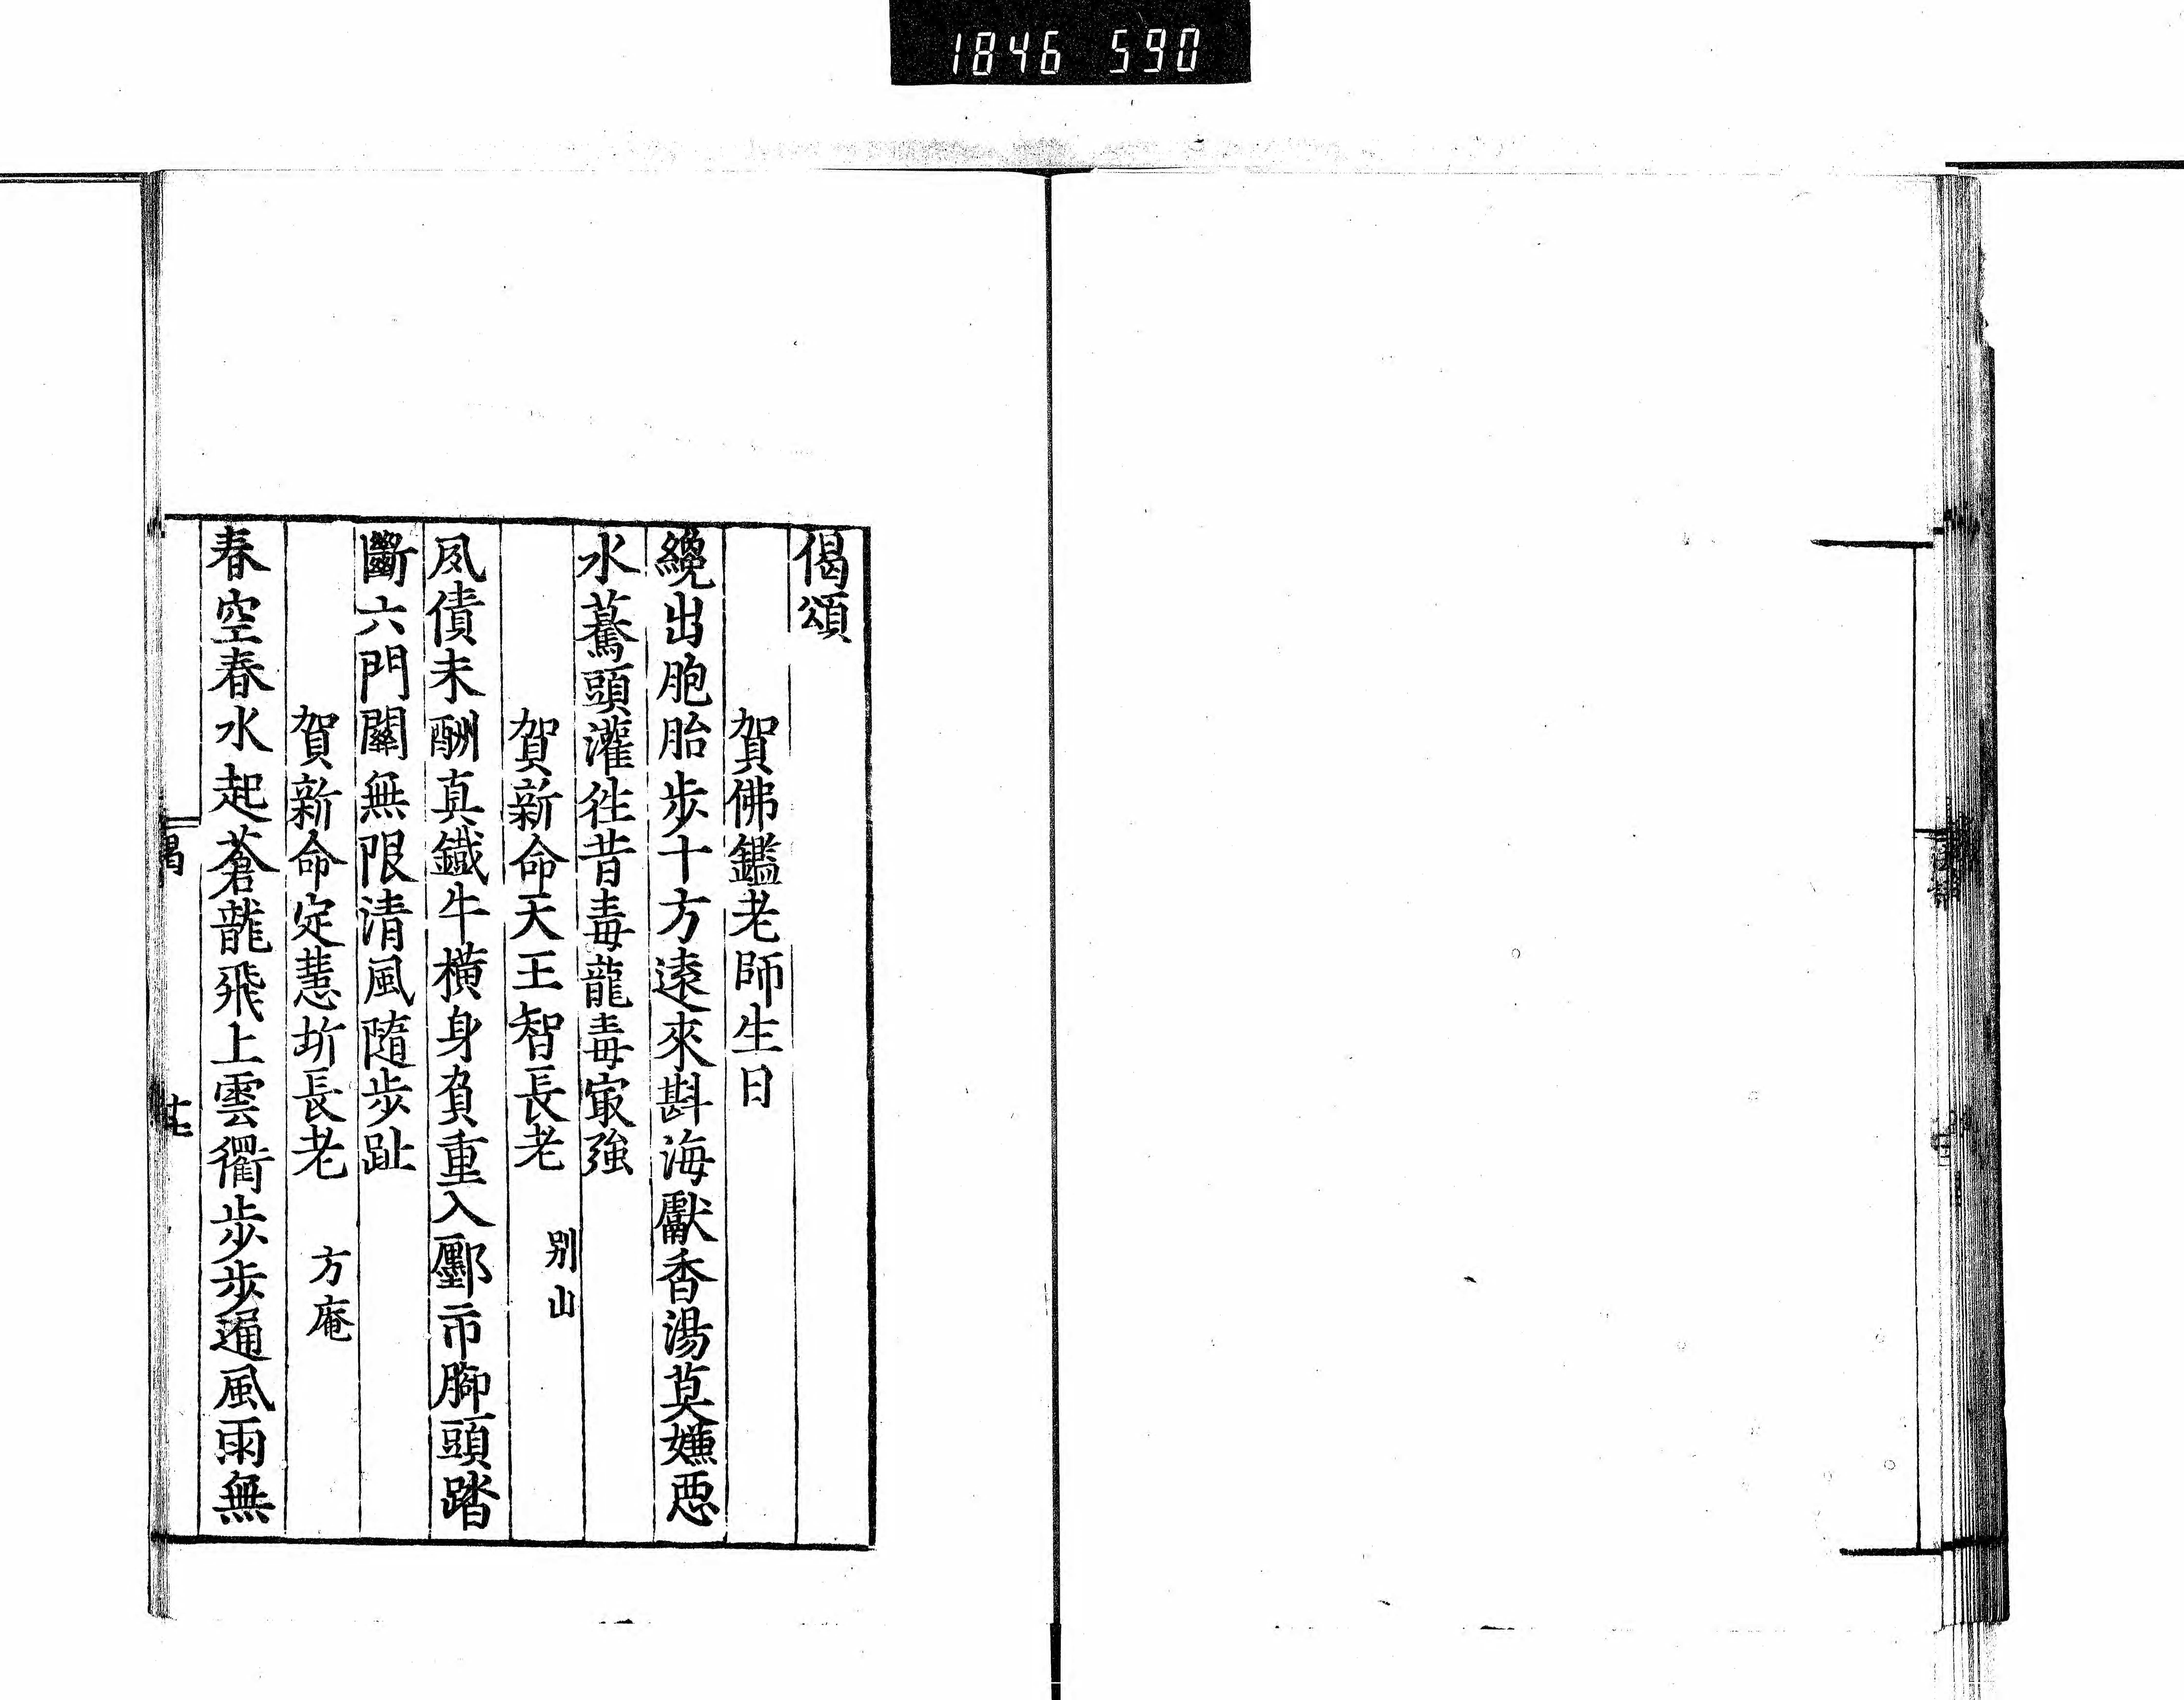 1846 590
偈頌
賀佛鑑老師生日
纔出胞胎步十方遠來斟海獻香湯莫嫌惡
水驀頭灌徃昔毒龍毒㝡強
賀新命天王智長老 别山
夙債未酬真鐵牛橫身負重入鄽市腳頭踏
斷六門關無限清風隨步趾
賀新命定慧圻長老 方庵
春空春水起蒼龍飛上雲衢步步遍風雨無